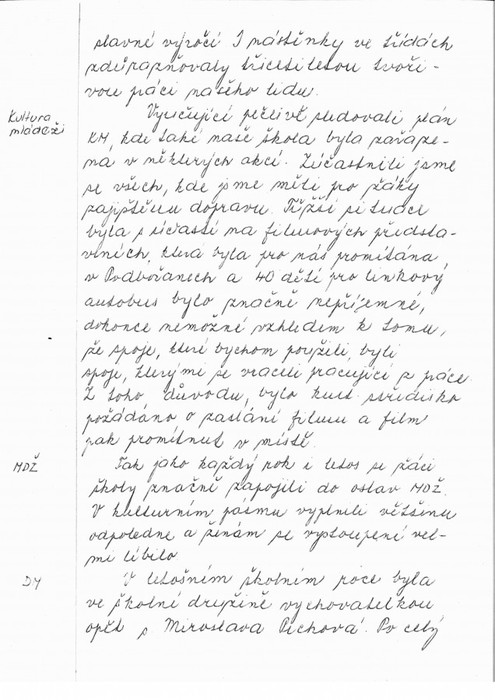 slavné výročí I nástěnky ve třídách
zdůrazňovaly třicetiletou tvoři-
vou práci našeho lidu.
Kultura
mládeži
Vyučující pečlivě sledovali plán
KM, kde také naše škola byla zařaze-
na v některých akcí. Zúčastnili jsme
se všech, kde jsme měli pro žáky
zajištěnu dopravu. Těžší situace
byla s účastí na filmových předsta-
veních, která byla pro nás promítána
v Podbořanech a 40 dětí pro linkový
autobus bylo značně nepříjemné,
dokonce nemožné vzhledem k tomu,
že spoje, které bychom použili, byli
spoje, kterými se vraceli pracující z práce.
Z toho důvodu, bylo kult. středisko
požádáno o zaslání filmu a film
pak promítnut v místě.
MDŽ
Tak jako každý rok i letos se žáci
školy značně zapojili do oslav MDŽ.
V kulturním pásmu vyplnili většinu
odpoledne a ženám se vystoupení vel-
mi líbilo
V letošním školním roce byla
ve školní družině vychovatelkou
opět s Miroslava Pichová. Po celý